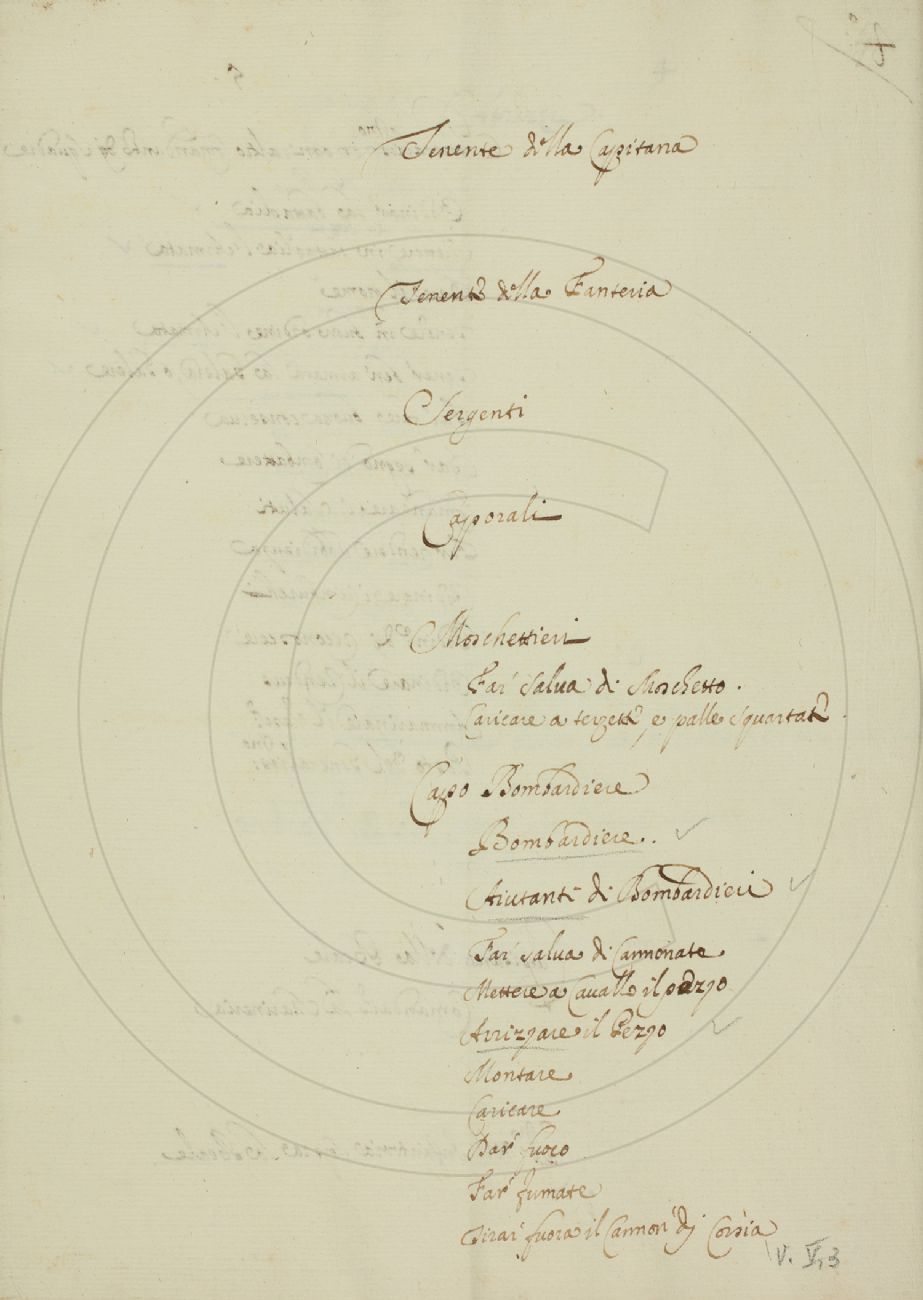 Tenente della Capitana
Tenente della Fanteria
Sergenti
Caporali
Moschettieri
Far' salua di Moschetto.
Caricare a terzette, e palle squartate
Capo Bombardiere
Bombardiere..
Aiutanti di Bombardieri
Far' salua di Cannonate
Mettere a Cauallo il pezzo
Arrizzare il Pezzo
Montare
Caricare
Dar' fuoco
Far' fumate
Tirar' fuora il Cannon' di Corsia
V. V, 3